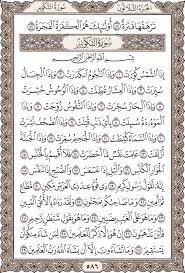 الجزء الثلاثون سورة التكوير
ترهقها قترة ۝ أولئك هم الكفرة الفجرة ۝
سورة التكوير
بسم الله الرحمن الرحيم
إذا الشمس كورت ۝ وإذا النجوم انكدرت ۝ وإذا الجبال
سيرت ۝ وإذا العشار عطلت ۝ وإذا الوحوش حشرت
۝ وإذا البحار سجرت ۝ وإذا النفوس زوجت ۝ وإذا
الموءودة سئلت ۝ بأي ذنب قتلت ۝ وإذا الصحف نشرت
۝ وإذا السماء كشطت ۝ وإذا الجحيم سعرت ۝ وإذا الجنة
أزلفت ۝ علمت نفس ما أحضرت ۝ فلا أقسم بالخنس
۝ الجوار الكنس ۝ والليل إذا عسعس ۝ والصبح إذا تنفس
۝ إنه لقول رسول كريم ۝ ذي قوة عند ذي العرش مكين
۝ مطاع ثم أمين ۝ وما صاحبكم بمجنون ۝ ولقد رآه
بالأفق المبين ۝ وما هو على الغيب بضنين ۝ وما هو بقول شيطان
رجيم ۝ فأين تذهبون ۝ إن هو إلا ذكر للعالمين ۝ لمن شاء منكم أن
يستقيم ۝ وما تشاءون إلا أن يشاء الله رب العالمين ۝
٥٨٦